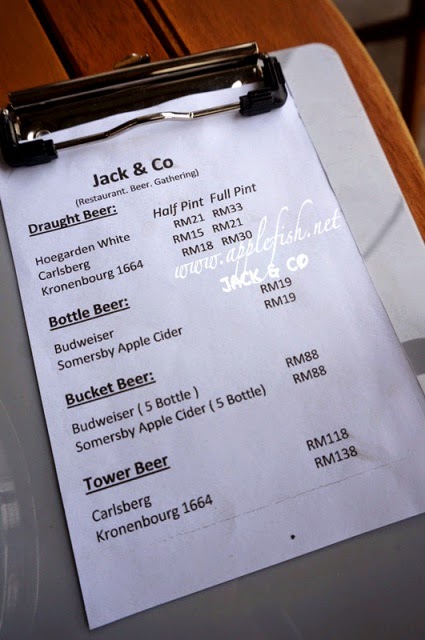 Jack & Co
(Restaurant. Beer. Gathering)
Draught Beer: Half Pint Full Pint
Hoegarden White RM21 RM33
Carlsberg RM15 RM21
Kronenbourg 1664 RM18 RM30
www.applefish.net
JACK & CO
Bottle Beer:
Budweiser RM19
Somersby Apple Cider RM19
Bucket Beer:
Budweiser ( 5 Bottle ) RM88
Somersby Apple Cider ( 5 Bottle) RM88
Tower Beer
Carlsberg RM118
Kronenbourg 1664 RM138